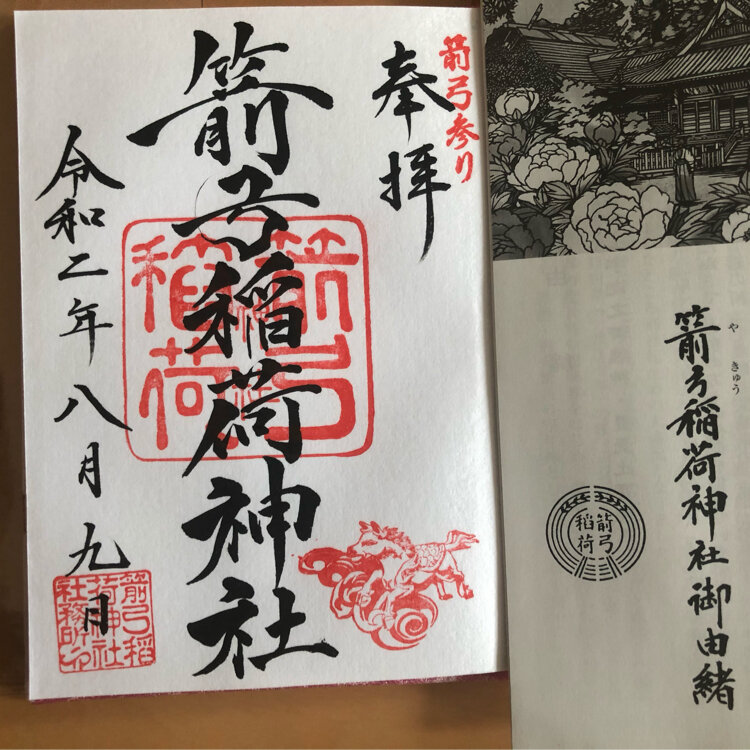 箭弓参り
奉拝
箭弓稲荷神社
令和二年八月九日
箭弓
稲荷
箭弓稲
荷神社
社務所之印
箭弓稲荷神社御由緒
や きゅう
箭弓
稲荷